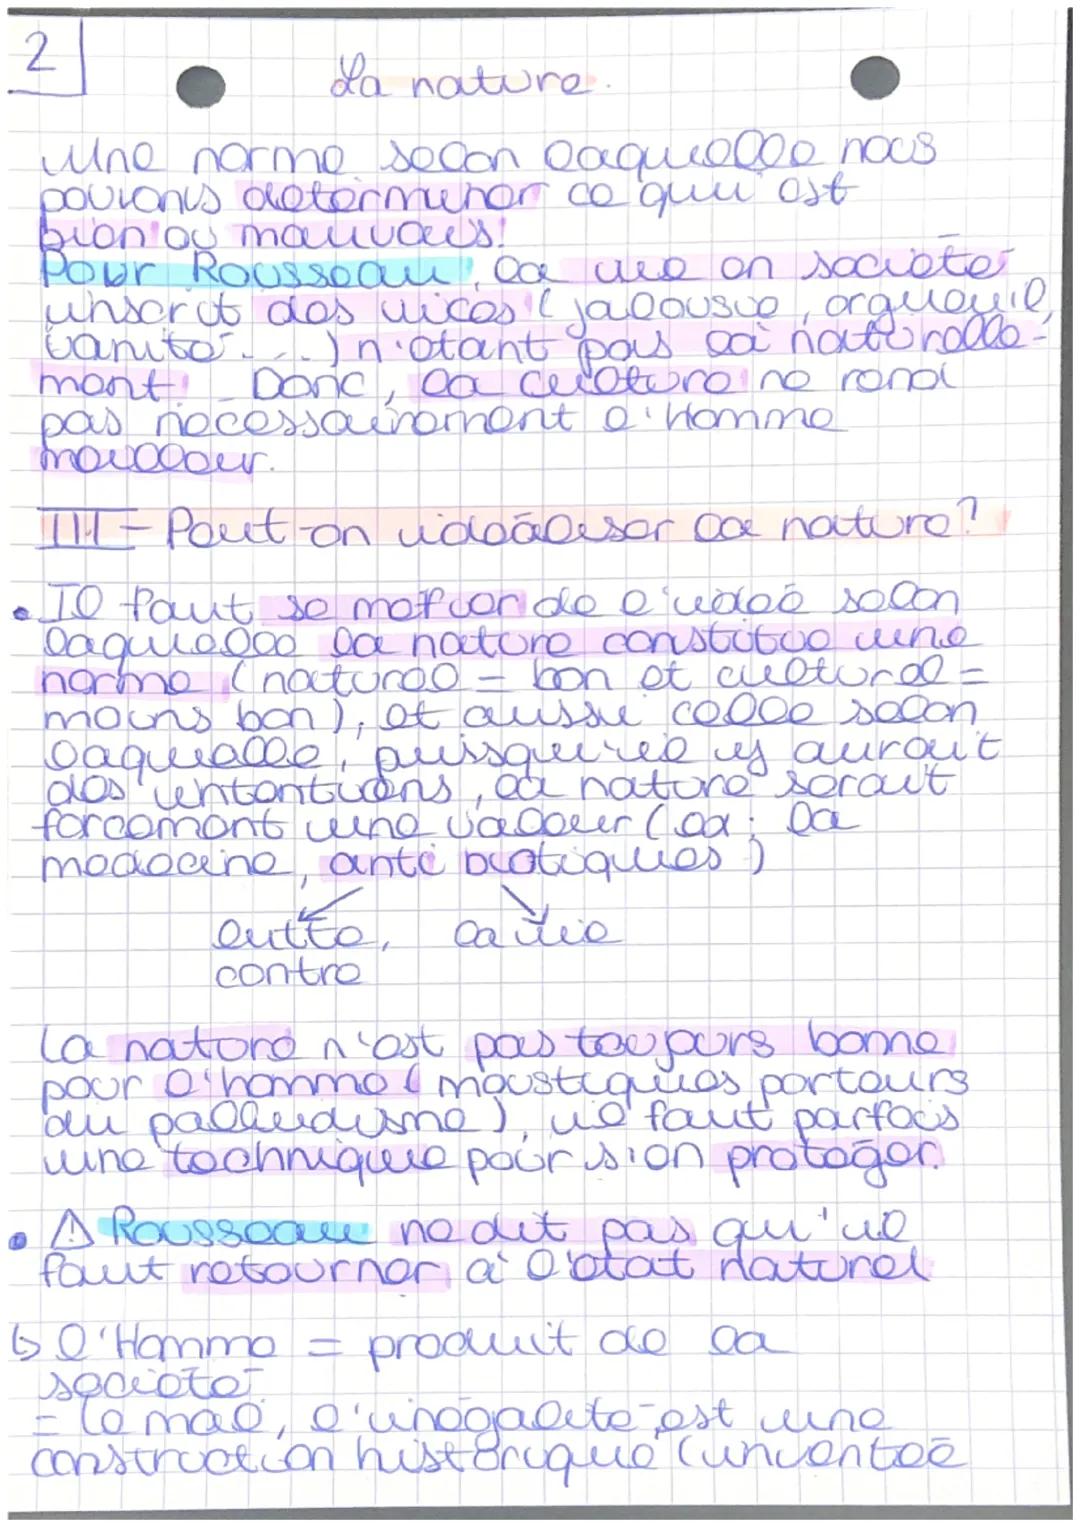 2
La nature.
Une norme selon laquelle nous
pouvons déterminer ce qui est
bien ou mauvais.
Pour Rousseau, la vie en société
inscrit des vices (jalousie, orgueuil,
vanité...) n'étant pas là naturelle-
ment. Donc, la culture ne rend
pas nécessairement l'Homme
meilleur.
III - Peut-on idéaliser la nature?
• Il faut se méfier de l'idée selon
laquelle la nature constitue une
norme (naturel = bon et culturel =
moins bon), et aussi celle selon
laquelle, puisqu'il y aurait
des intentions, la nature serait
forcément une valeur (ex: la
médecine, antibiotiques)
lutte, la vie
contre
La nature n'est pas toujours bonne
pour l'homme (moustiques porteurs
du palludisme), il faut parfois
une technique pour s'en protéger.
• ⚠ Rousseau ne dit pas qu'il
faut retourner à l'état naturel
↳ l'Homme = produit de la
société
= le mal, l'inégalité est une
construction historique (inventée